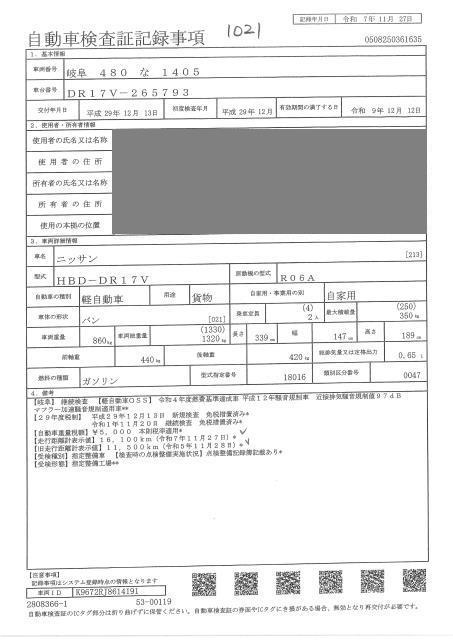 記録年月日 令和 7年11月 27日
自動車検査証記録事項 1021
0508250361635
1. 基本情報
車両番号 岐阜 480 な 1405
車台番号 DR17V-265793
交付年月日 平成 29年 12月 13日 初度検査年月 平成 29年 12月 有効期間の満了する日 令和 9年 12月 12日
2. 使用者・所有者情報
使用者の氏名又は名称
使用者の住所
所有者の氏名又は名称
所有者の住所
使用の本拠の位置
3. 車両詳細情報
車名 ニッサン [213]
型式 HBD-DR17V 原動機の型式 R06A
自動車の種別 軽自動車 用途 貨物 自家用・事業用の別 自家用
車体の形状 バン [021] 乗車定員 (4) 2人 最大積載量 (250) 350kg
車両重量 860kg 車両総重量 (1330) 1320kg 長さ 339cm 幅 147cm 高さ 189cm
前軸重 440kg 後軸重 420kg 総排気量又は定格出力 0.65 L
燃料の種類 ガソリン 型式指定番号 18016 類別区分番号 0047
4. 備考
【岐阜】 継続検査 【軽自動車OSS】 令和4年度燃費基準達成車 平成12年騒音規制車 近接排気騒音規制値97dB
マフラー加速騒音規制適用車**
【29年度税制】 平成29年12月13日 新規検査 免税措置済み*
令和1年11月20日 継続検査 免税措置済み*
【自動車重量税額】 ¥5,000 本則税率適用*
【走行距離計表示値】 16,100km (令和7年11月27日)*
【旧走行距離計表示値】 11,500km (令和5年11月28日)*
【受検種別】 指定整備車 【検査時の点検整備実施状況】 点検整備記録簿記載あり*
【受検形態】 指定整備工場**
【注意事項】
記録事項はシステム登録時点の情報となります
車両ID K9672RJ8614191
2808366-1 53-00119
自動車検査証のICタグ部分は折り曲げずに保管してください。自動車検査証の券面やICタグにき損がある場合、無効となり再交付が必要です。